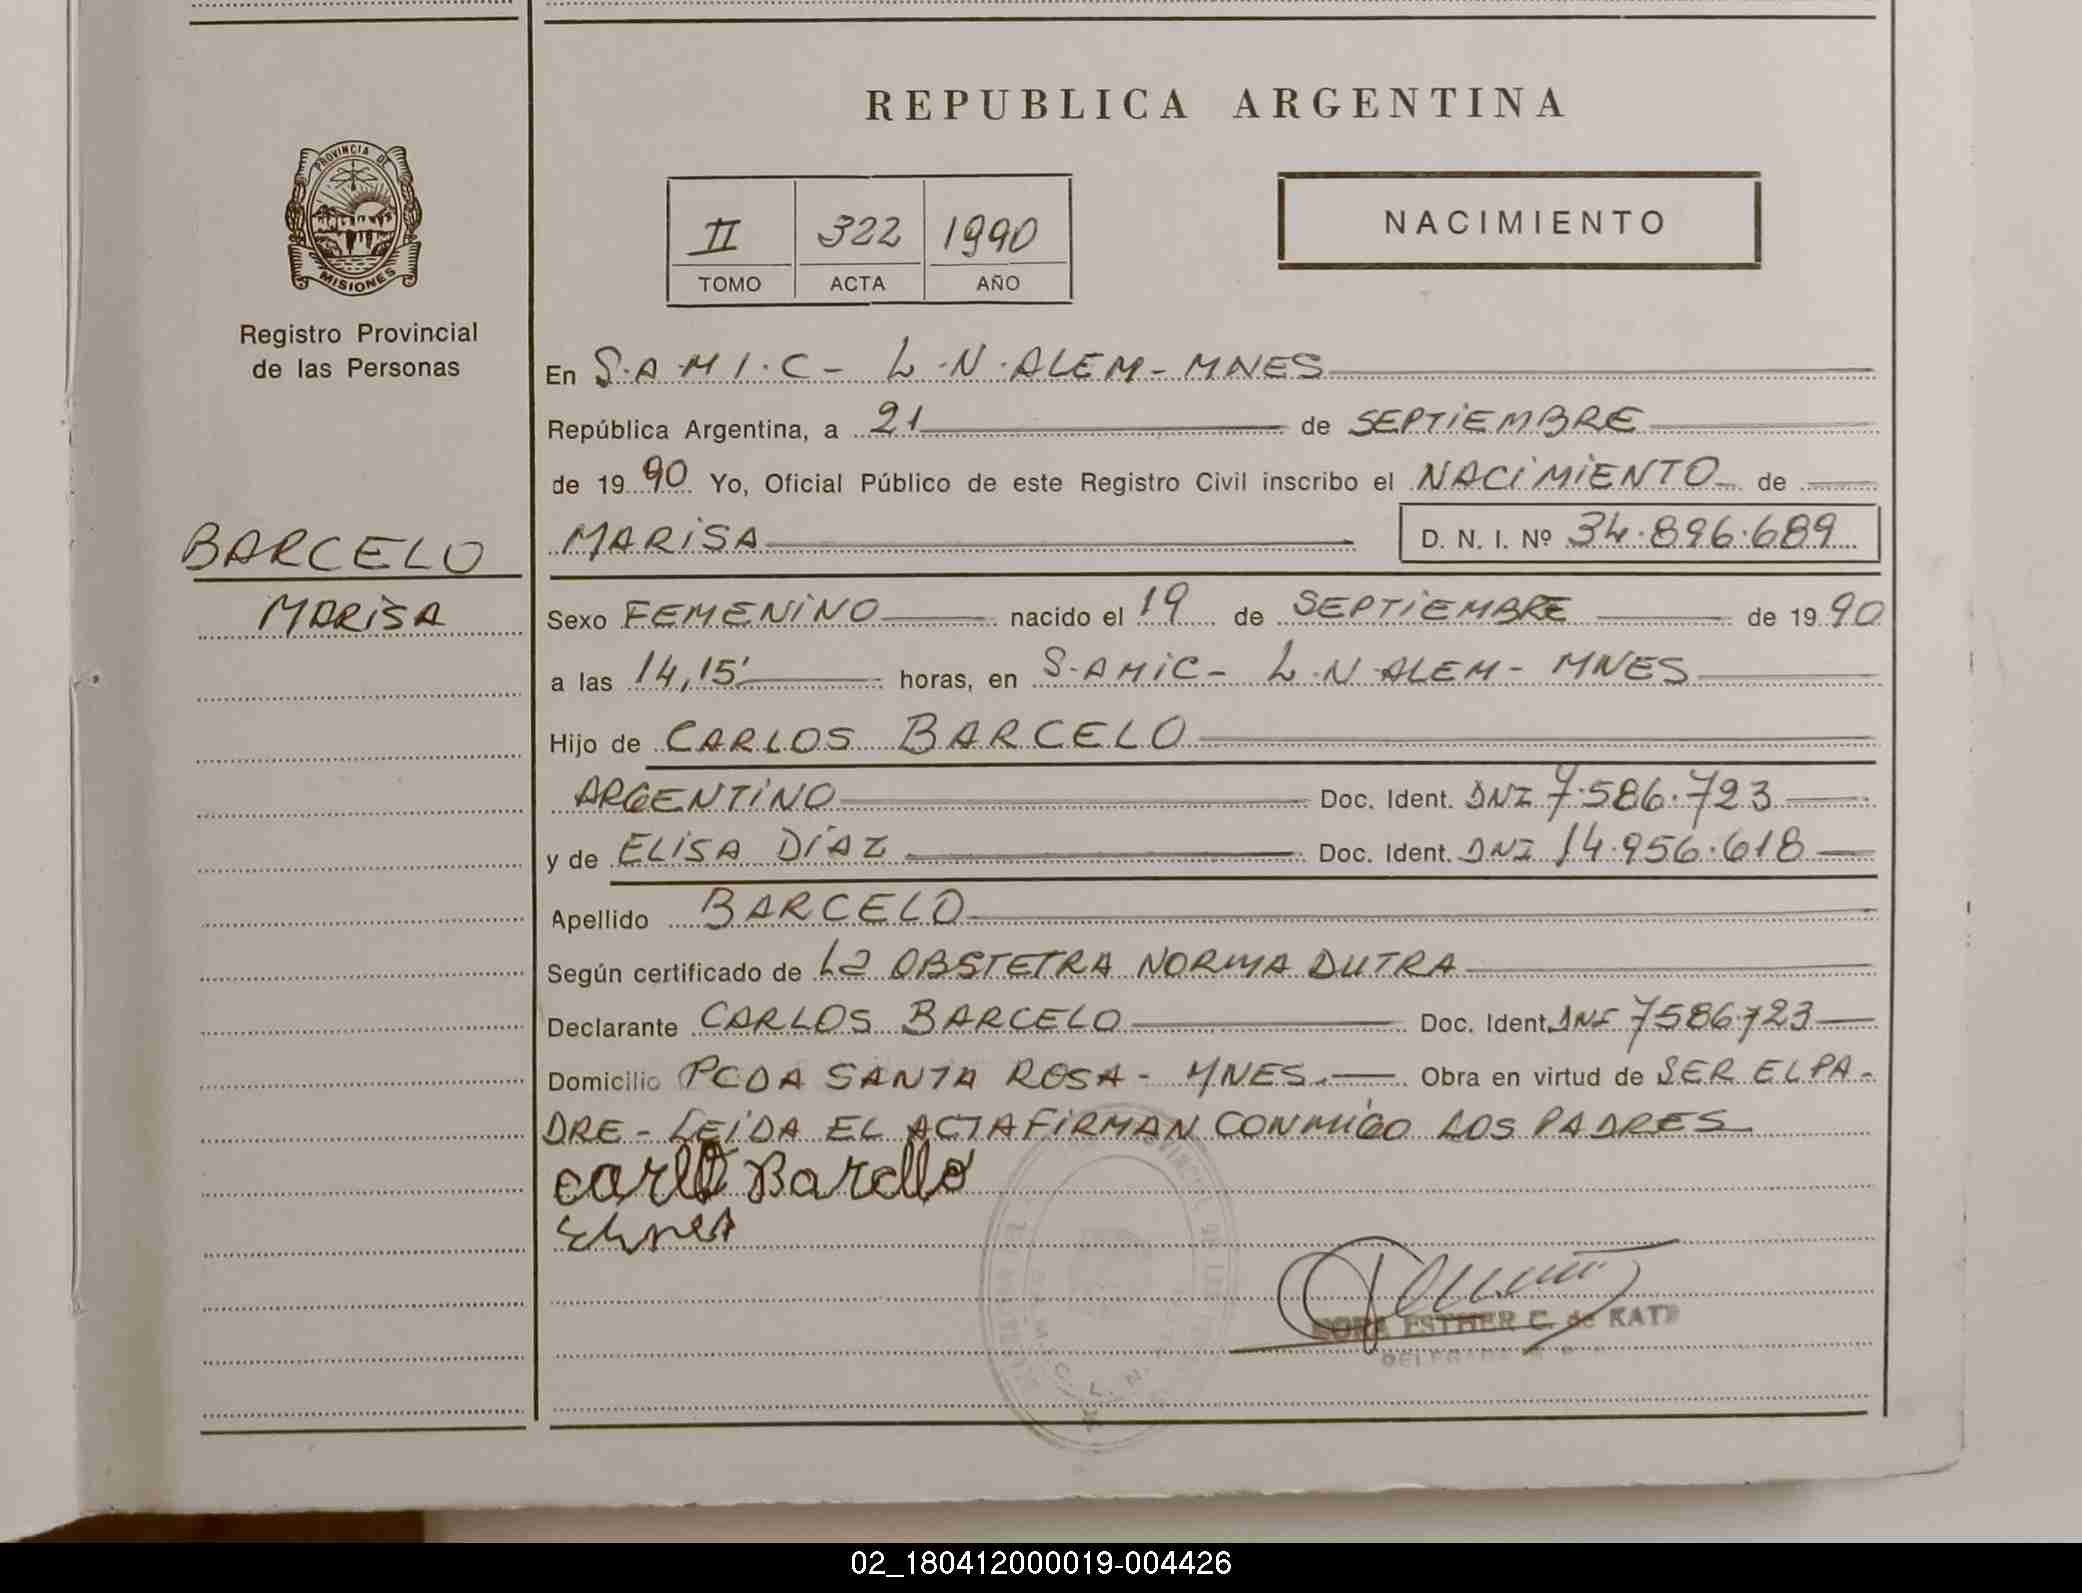 REPUBLICA ARGENTINA
PROVINCIA DE
MISIONES
Registro Provincial
de las Personas
II 322 1990
TOMO ACTA AÑO
NACIMIENTO
BARCELO
MARISA
En S.A.M.I.C - L.N.ALEM - MNES
República Argentina, a 21 de SEPTIEMBRE
de 1990 Yo, Oficial Público de este Registro Civil inscribo el NACIMIENTO de
MARISA D. N. I. Nº 34.896.689
Sexo FEMENINO nacido el 19 de SEPTIEMBRE de 1990
a las 14,15' horas, en S.AMIC - L.N.ALEM - MNES
Hijo de CARLOS BARCELO
ARGENTINO Doc. Ident. DNI 7.586.723
y de ELISA DÍAZ Doc. Ident. DNI 14.956.618
Apellido BARCELO
Según certificado de La OBSTETRA NORMA DUTRA
Declarante CARLOS BARCELO Doc. Ident. DNI 7586723
Domicilio PCDA SANTA ROSA - MNES. Obra en virtud de SER EL PA-
DRE - LEIDA EL ACTA FIRMAN CONMIGO LOS PADRES
Carlo Barcelo
ESTHER C. de KATZ
02_180412000019-004426